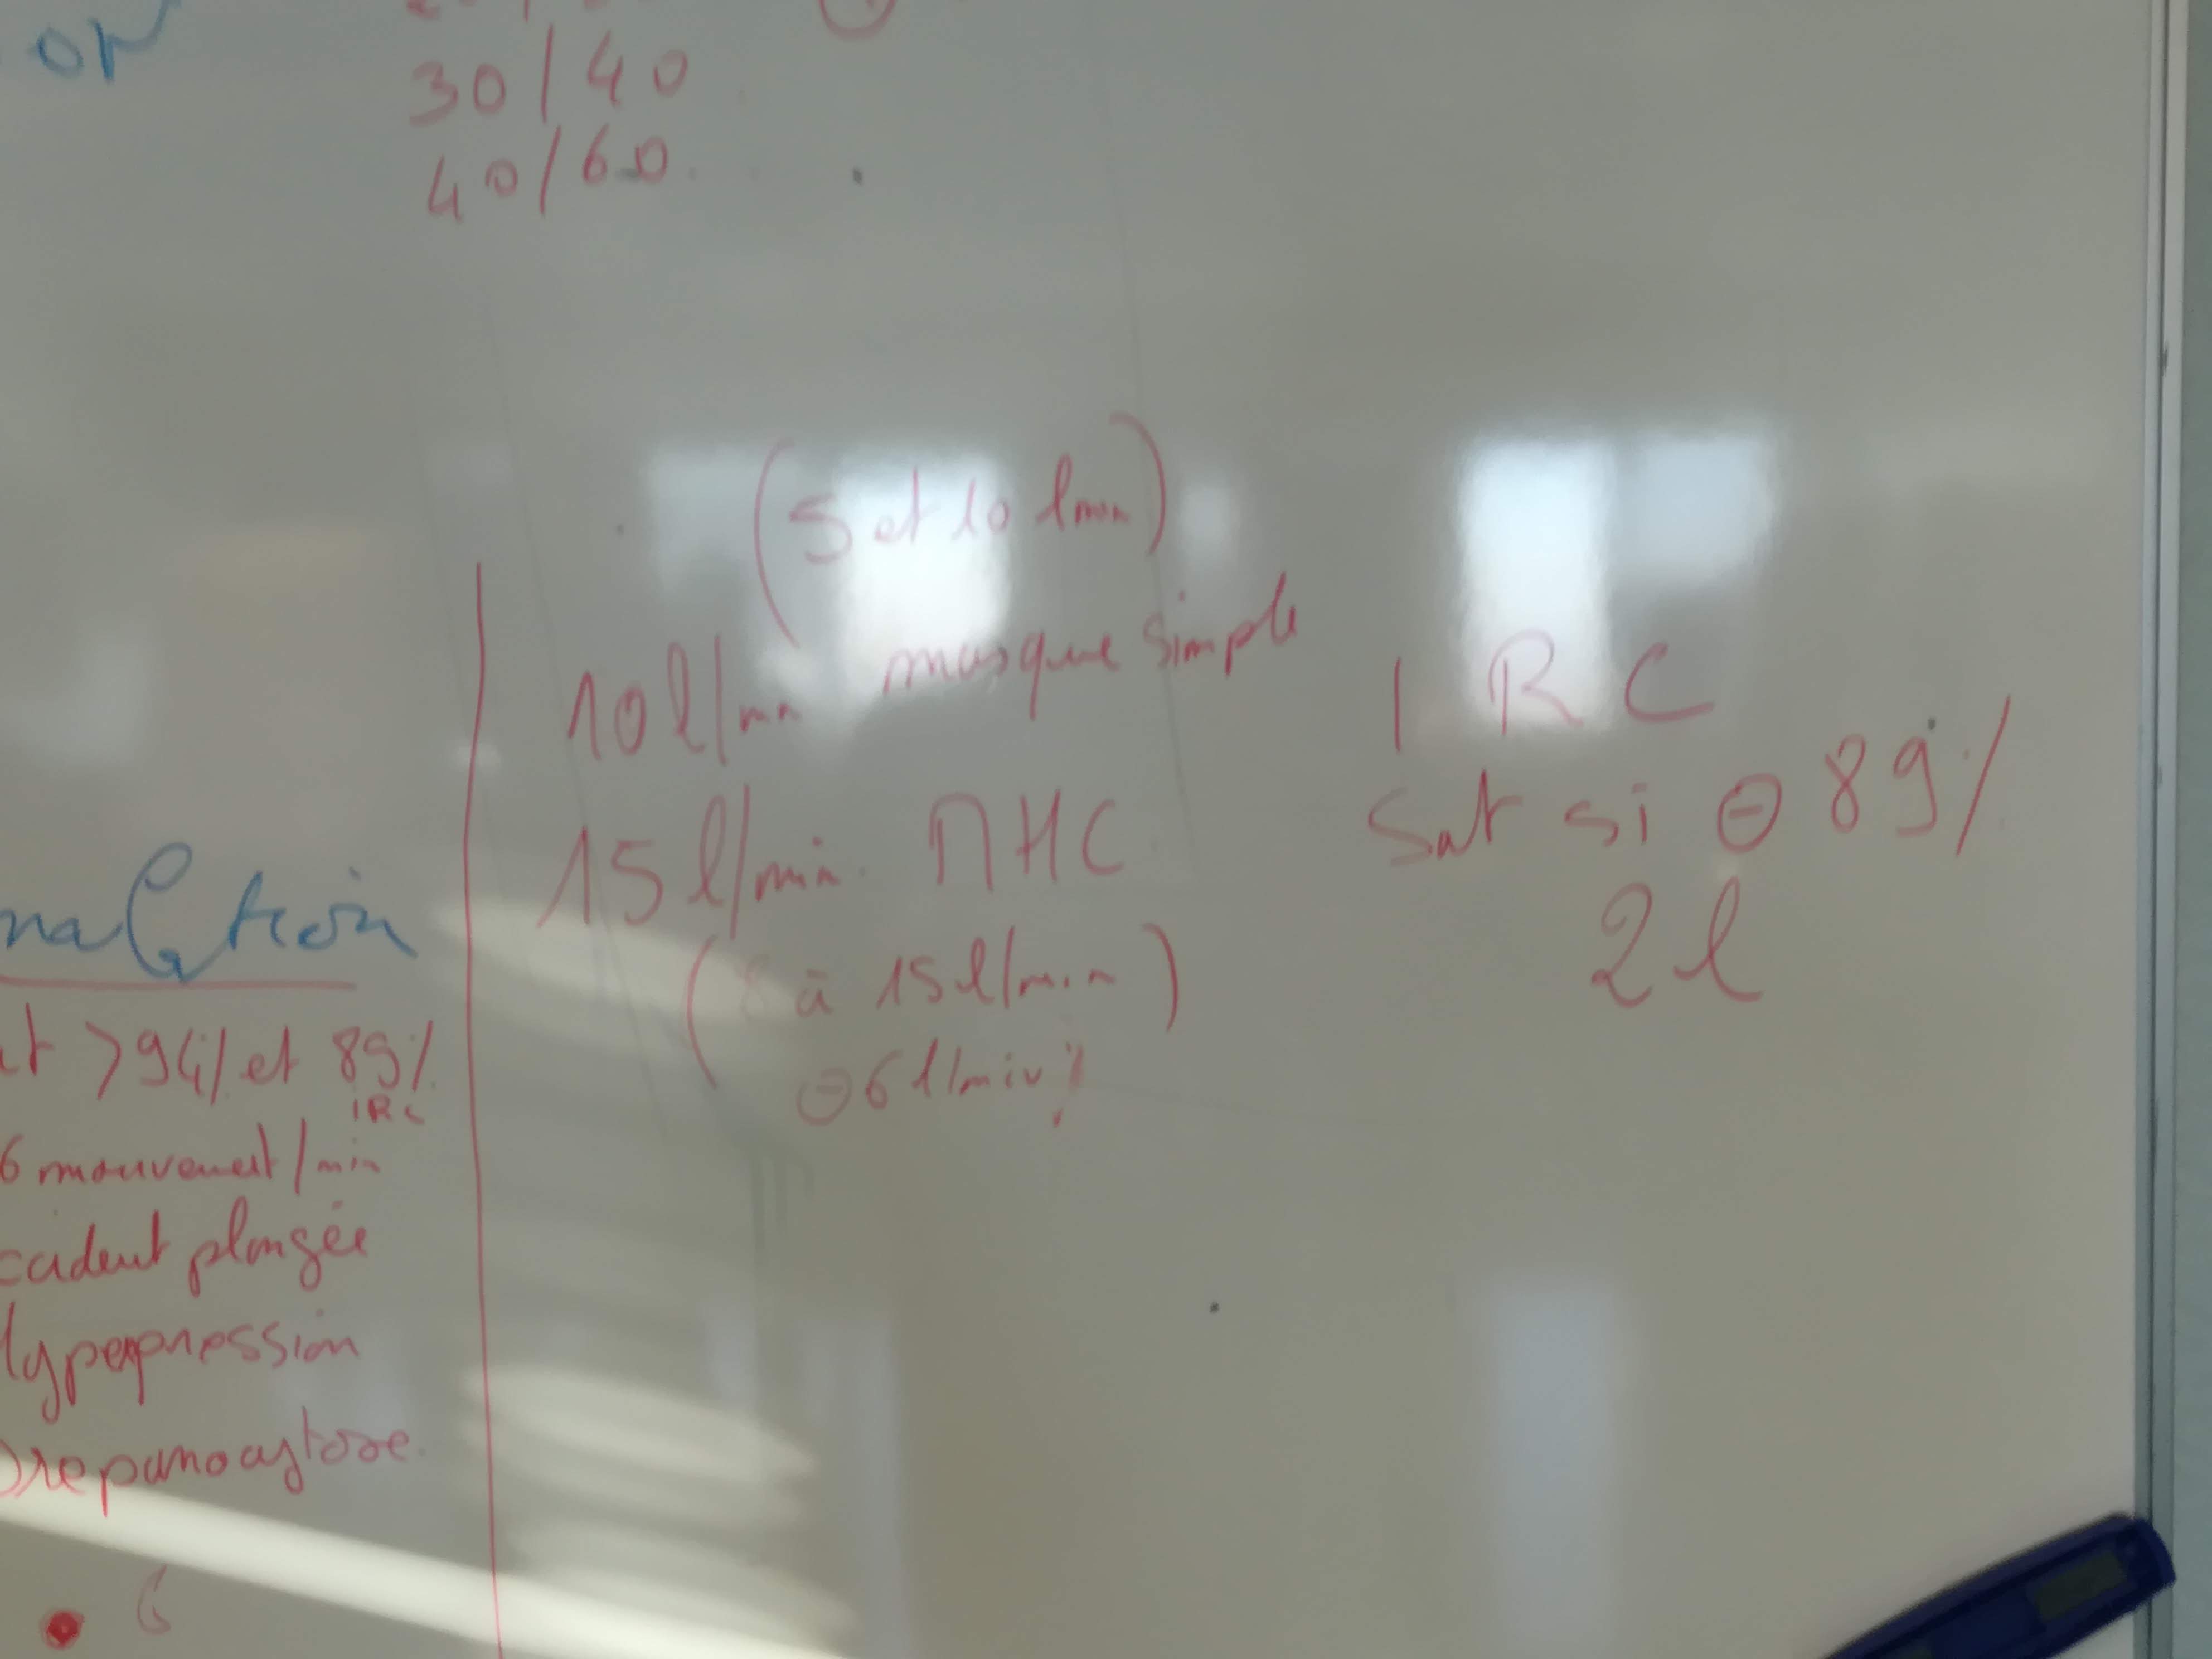 30/40
40/60
(5 et 10 l/min)
10 l/min masque simple
15 l/min MHC
(8 à 15 l/min)
⊖ 6 l/min
IRC
Sat si ⊖ 89%
2 l
>94% et 89%
IRC
6 mouvement/min
plongée
hyperpression
Drepanocytose
6